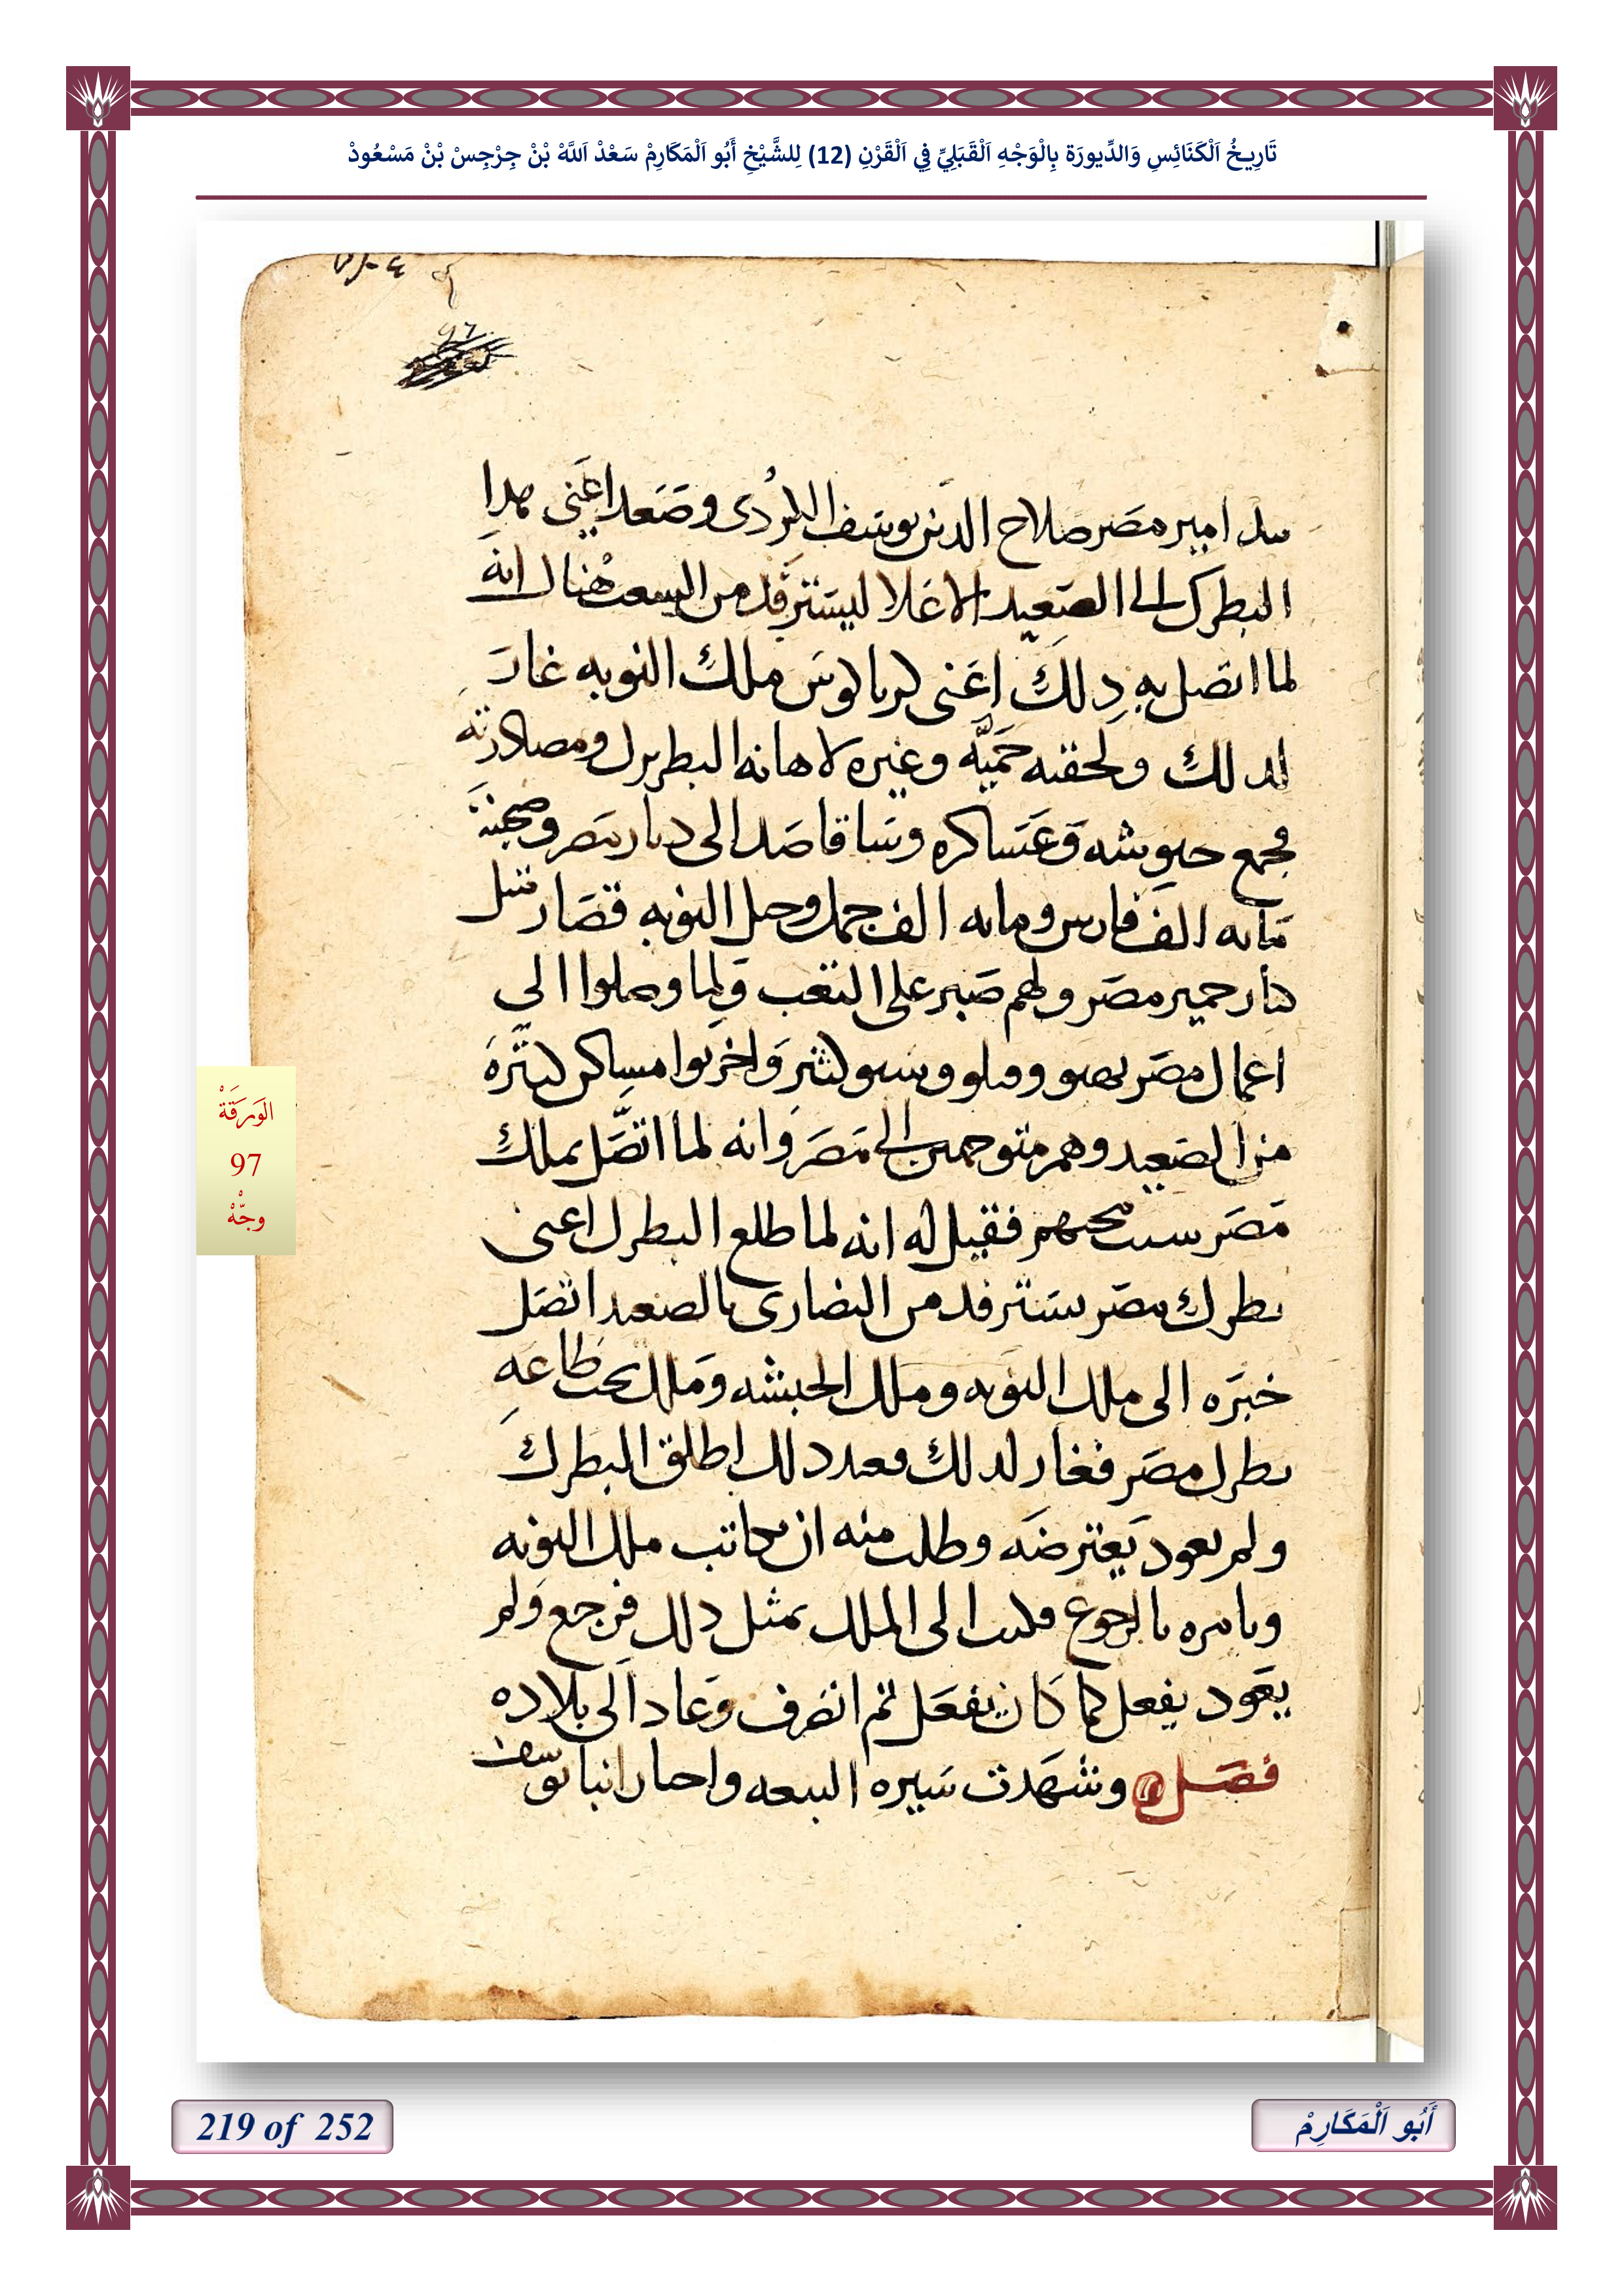 تَارِيخُ اَلْكَنَائِسِ وَالدِّيورَة بِالْوَجْهِ اَلْقَبَلِيِّ فِي اَلْقَرْنِ (12) لِلشَّيْخِ أَبُو اَلْمَكَارِمْ سَعْدْ اَللَّهْ بْنْ جِرْجِسْ بْنْ مَسْعُودْ
امير مصر صلاح الدين يوسف الكردى وصعد اعنى هدا
البطرك الى الصعيد الاعلا ليسترفد من البيعت هناك انه
لما اتصل به دلك اعنى كرياكوس ملك النوبه غار
لدلك ولحقته حميه وغيره لاهانه البطريرك ومصادرته
فجمع جيوشه وعساكره وسا قاصد الى ديار مصر وصحبته
مايه الف فارس ومايه الف جمل وخيل النوبه قصار مثل
كبار حمير مصر ولهم صبر على التعب ولما وصلوا الى
اعمال مصر نهبو وقتلو وسبو كثير واخربوا مساكن كثيره
من الصعيد وهم متوجهين الى مصر وانه لما اتصل بملك
مصر سبب مجيهم فقيل له انه لما طلع البطرك اعنى
بطرك مصر يسترفد من النصارى بالصعيد اتصل
خبره الى ملك النوبه وملك الحبشه وملك تحت طاعه
بطرك مصر فغار لدلك فعند دلك اطلق البطرك
ولم يعود يعترضه وطلب منه ان يكاتب ملك النوبه
ويامره بالرجوع فكتب الى الملك بمثل دلك فرجع ولم
يعود يفعل كما كان يفعل ثم انصرف وعاد الى بلاده
فصل وشهدت سيره البيعه واخبار انبا يوسف
الوَرَقَةْ
97
وجْهْ
219 of 252
أَبُو اَلْمَكَارِمْ